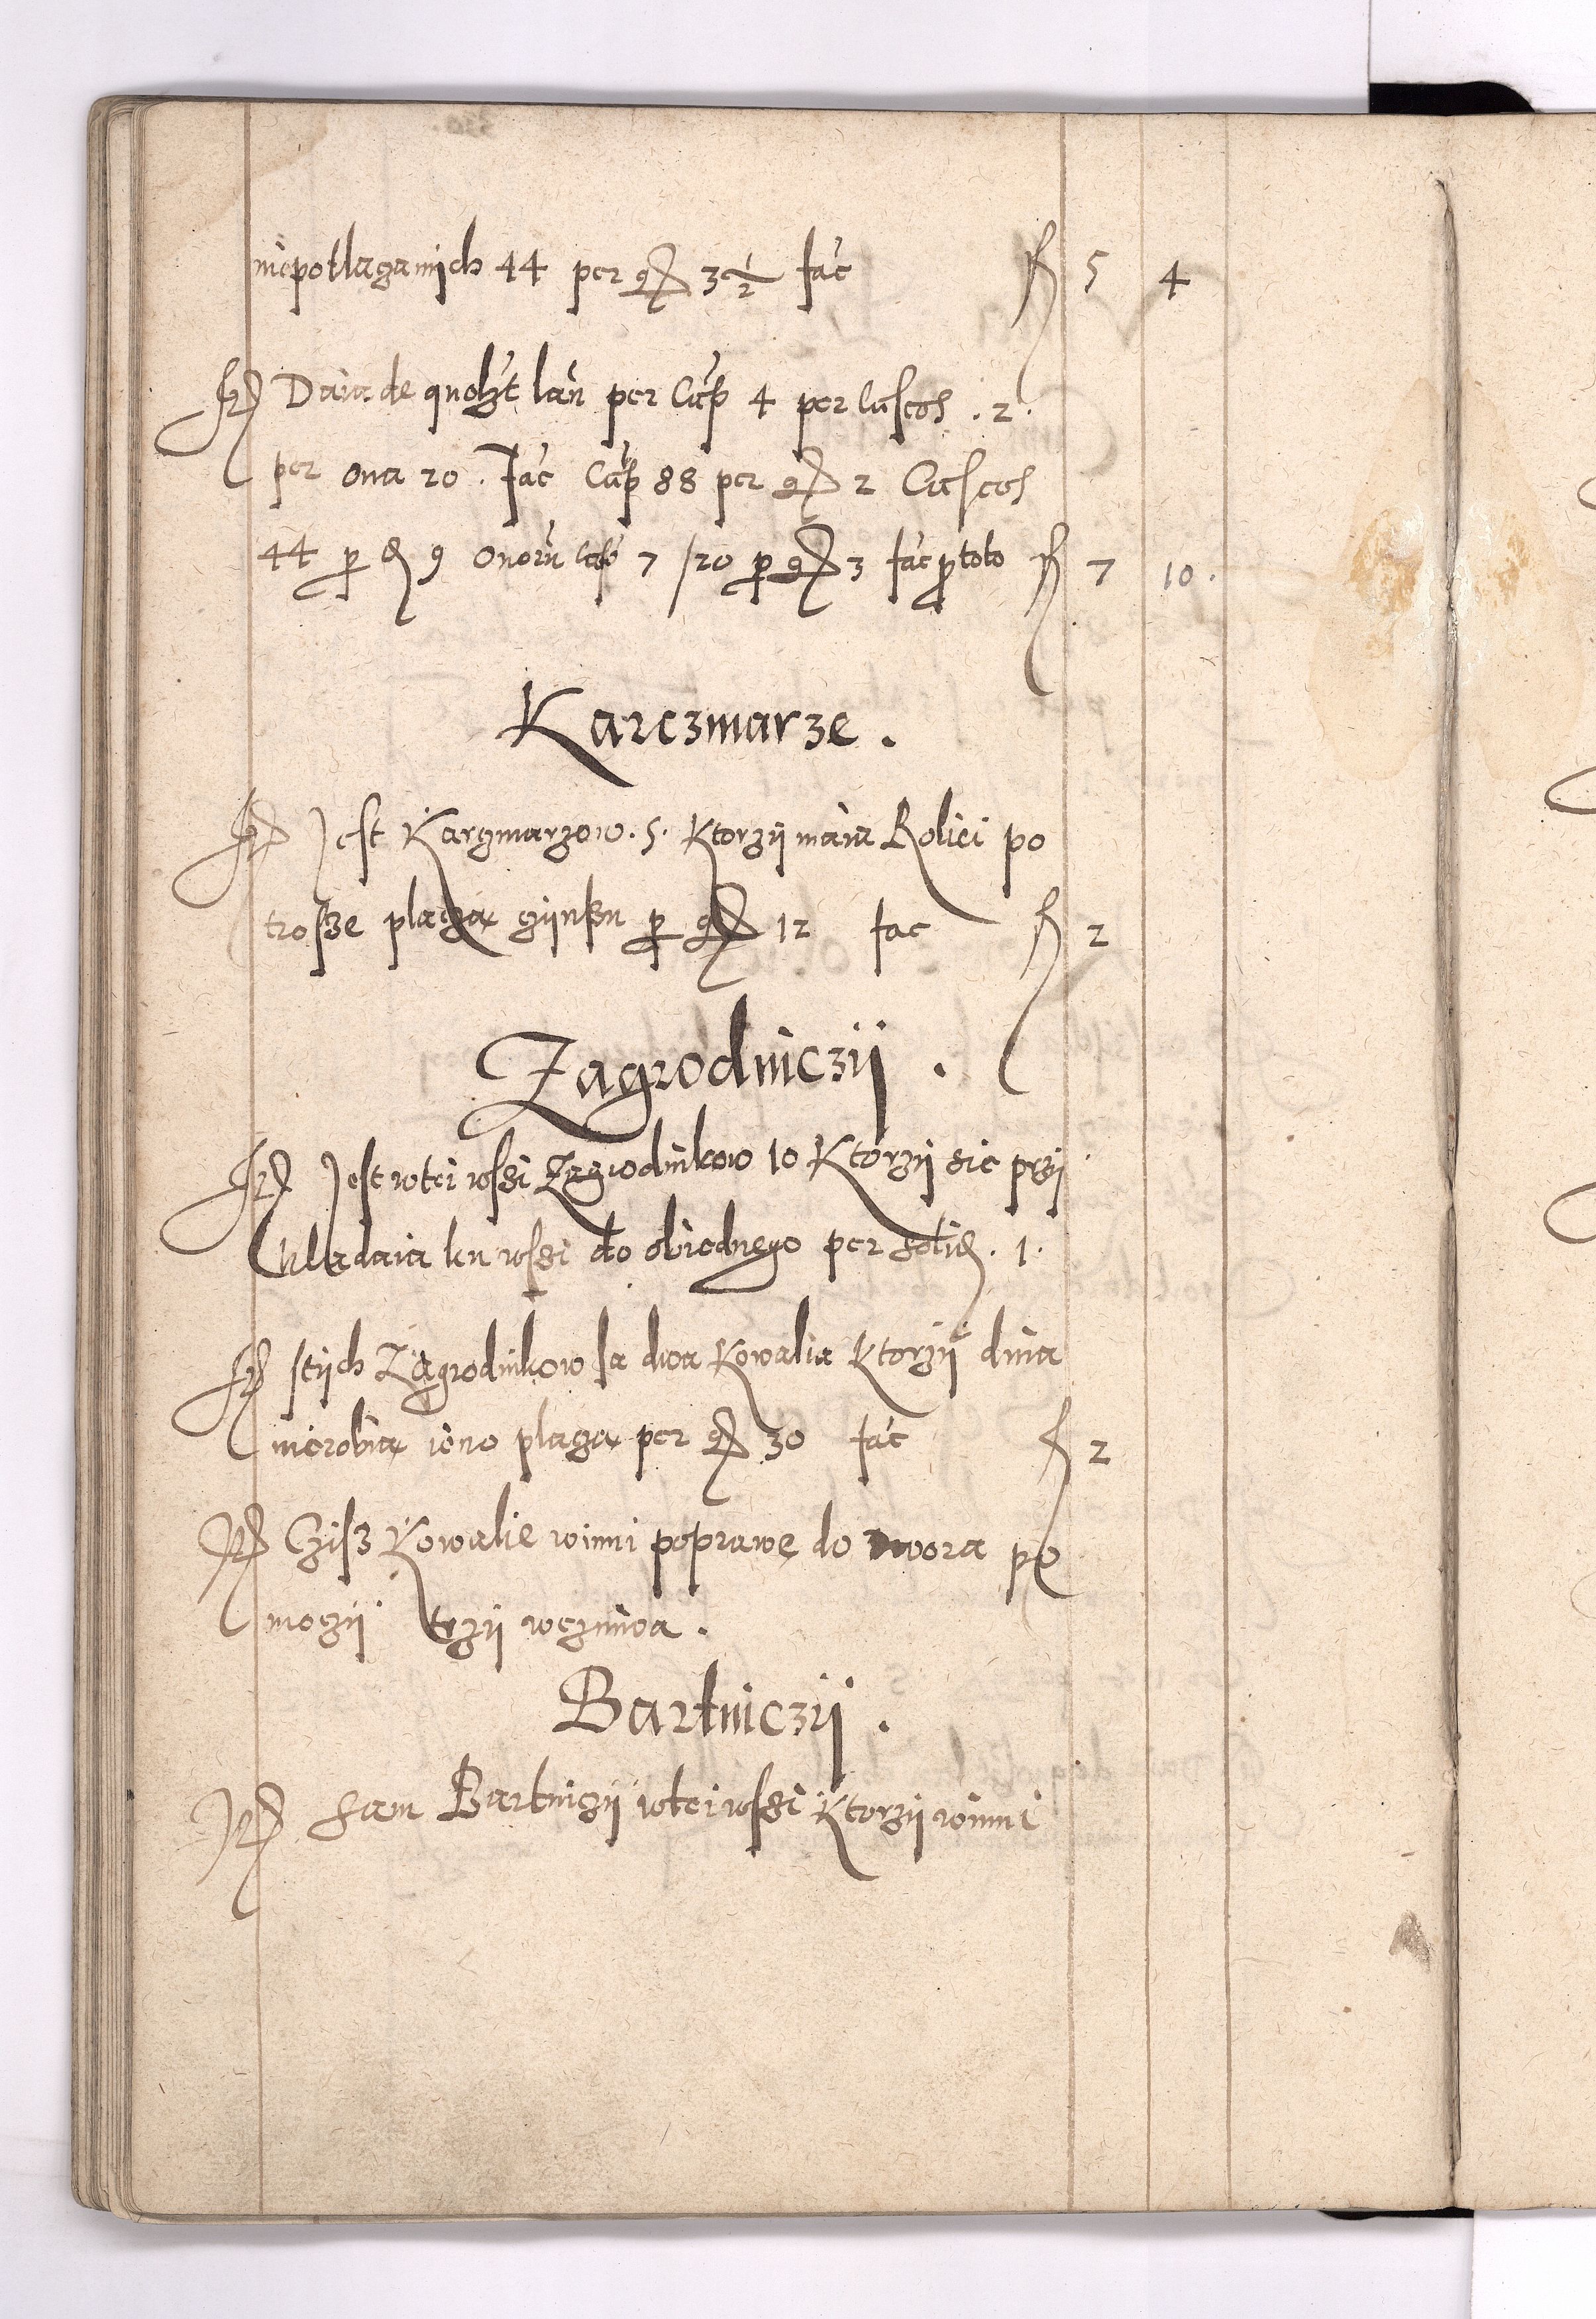 niepotlaganich 44 per gr 3 1/2 fac̄ fl 5 4
Itē Daia de quolꝫt lan̄ per Cap̄ 4 per Caseos . 2 .
per oua 20 . fac̄ Cap̄ 88 per gr 2 Caseos
44 p̱ d 9 ouorū sexa 7 /20 p̱ gr 3 fac̄ p̱ toto fl 7 10 .
Karczmarze .
Itē Jest Karczmarzow . 5 . Ktorzÿ maia Roliei po
trosze placza czÿnszu p̱ gr 12 fac fl 2
Zagrodniczÿ .
Itē Jest wtei wssi Zagrodnikow 10 Ktorzÿ sie przÿ
kladaia ku wssi do obiednego per solid . 1 .
Itē stÿch Zagrodnikow sa dwa Kowalia Ktorzÿ dnia
nierobia ieno placza per gr 30 fac̄ fl 2
Itē Czisz Kowalie winni poprawe do dwora po
moczÿ trzÿ wczinva .
Bartniczÿ .
Itē Sam Bartniczÿ wtei wssi Ktorzÿ winni